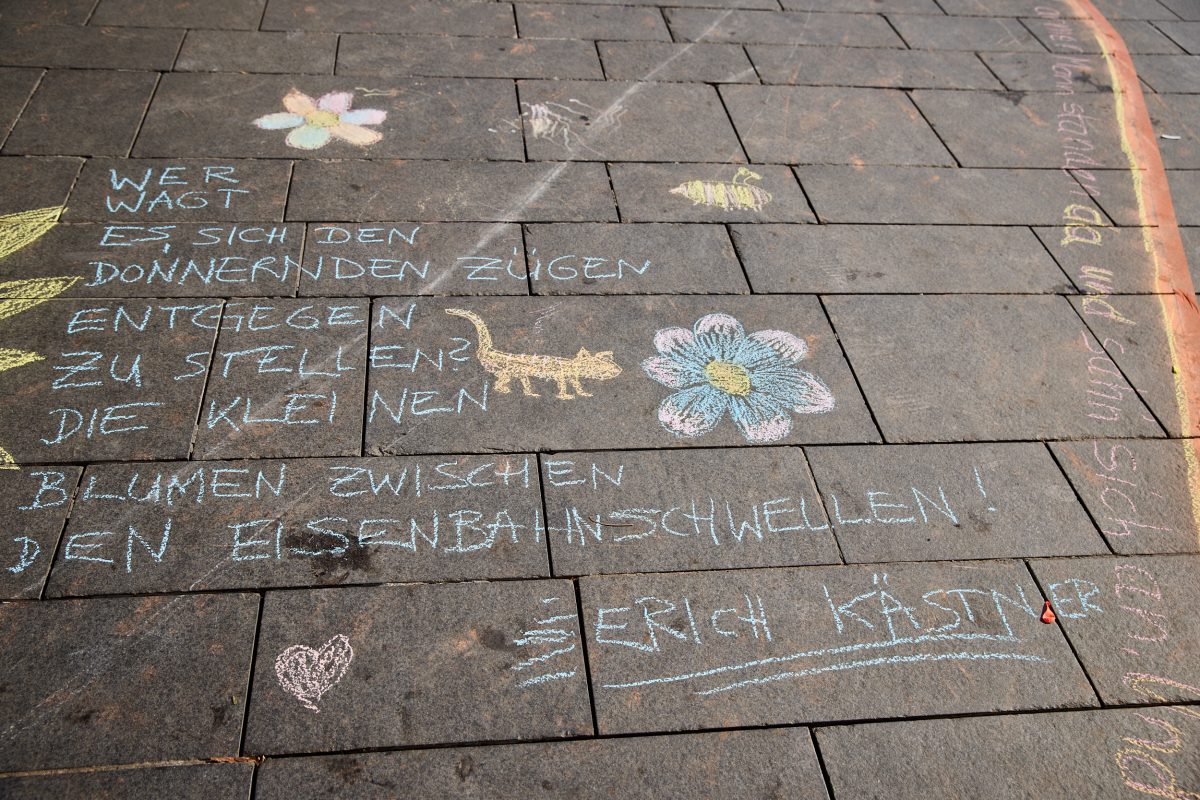 WER
WAGT
ES SICH DEN
DONNERNDEN ZÜGEN
ENTGEGEN
ZU STELLEN?
DIE KLEINEN
BLUMEN ZWISCHEN
DEN EISENBAHNSCHWELLEN!
ERICH KÄSTNER
standen da und sahn sich an. Und